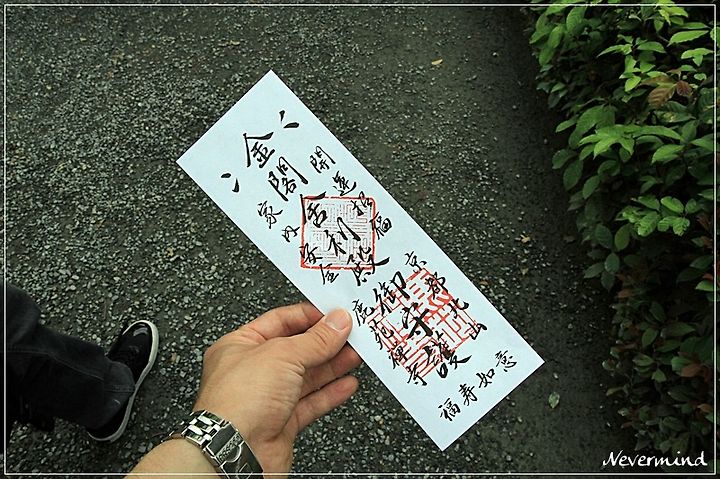 開運招福
金閣舎利殿御守護
家内安全
京都北山
鹿苑禅寺
如意
福寿
Nevermind